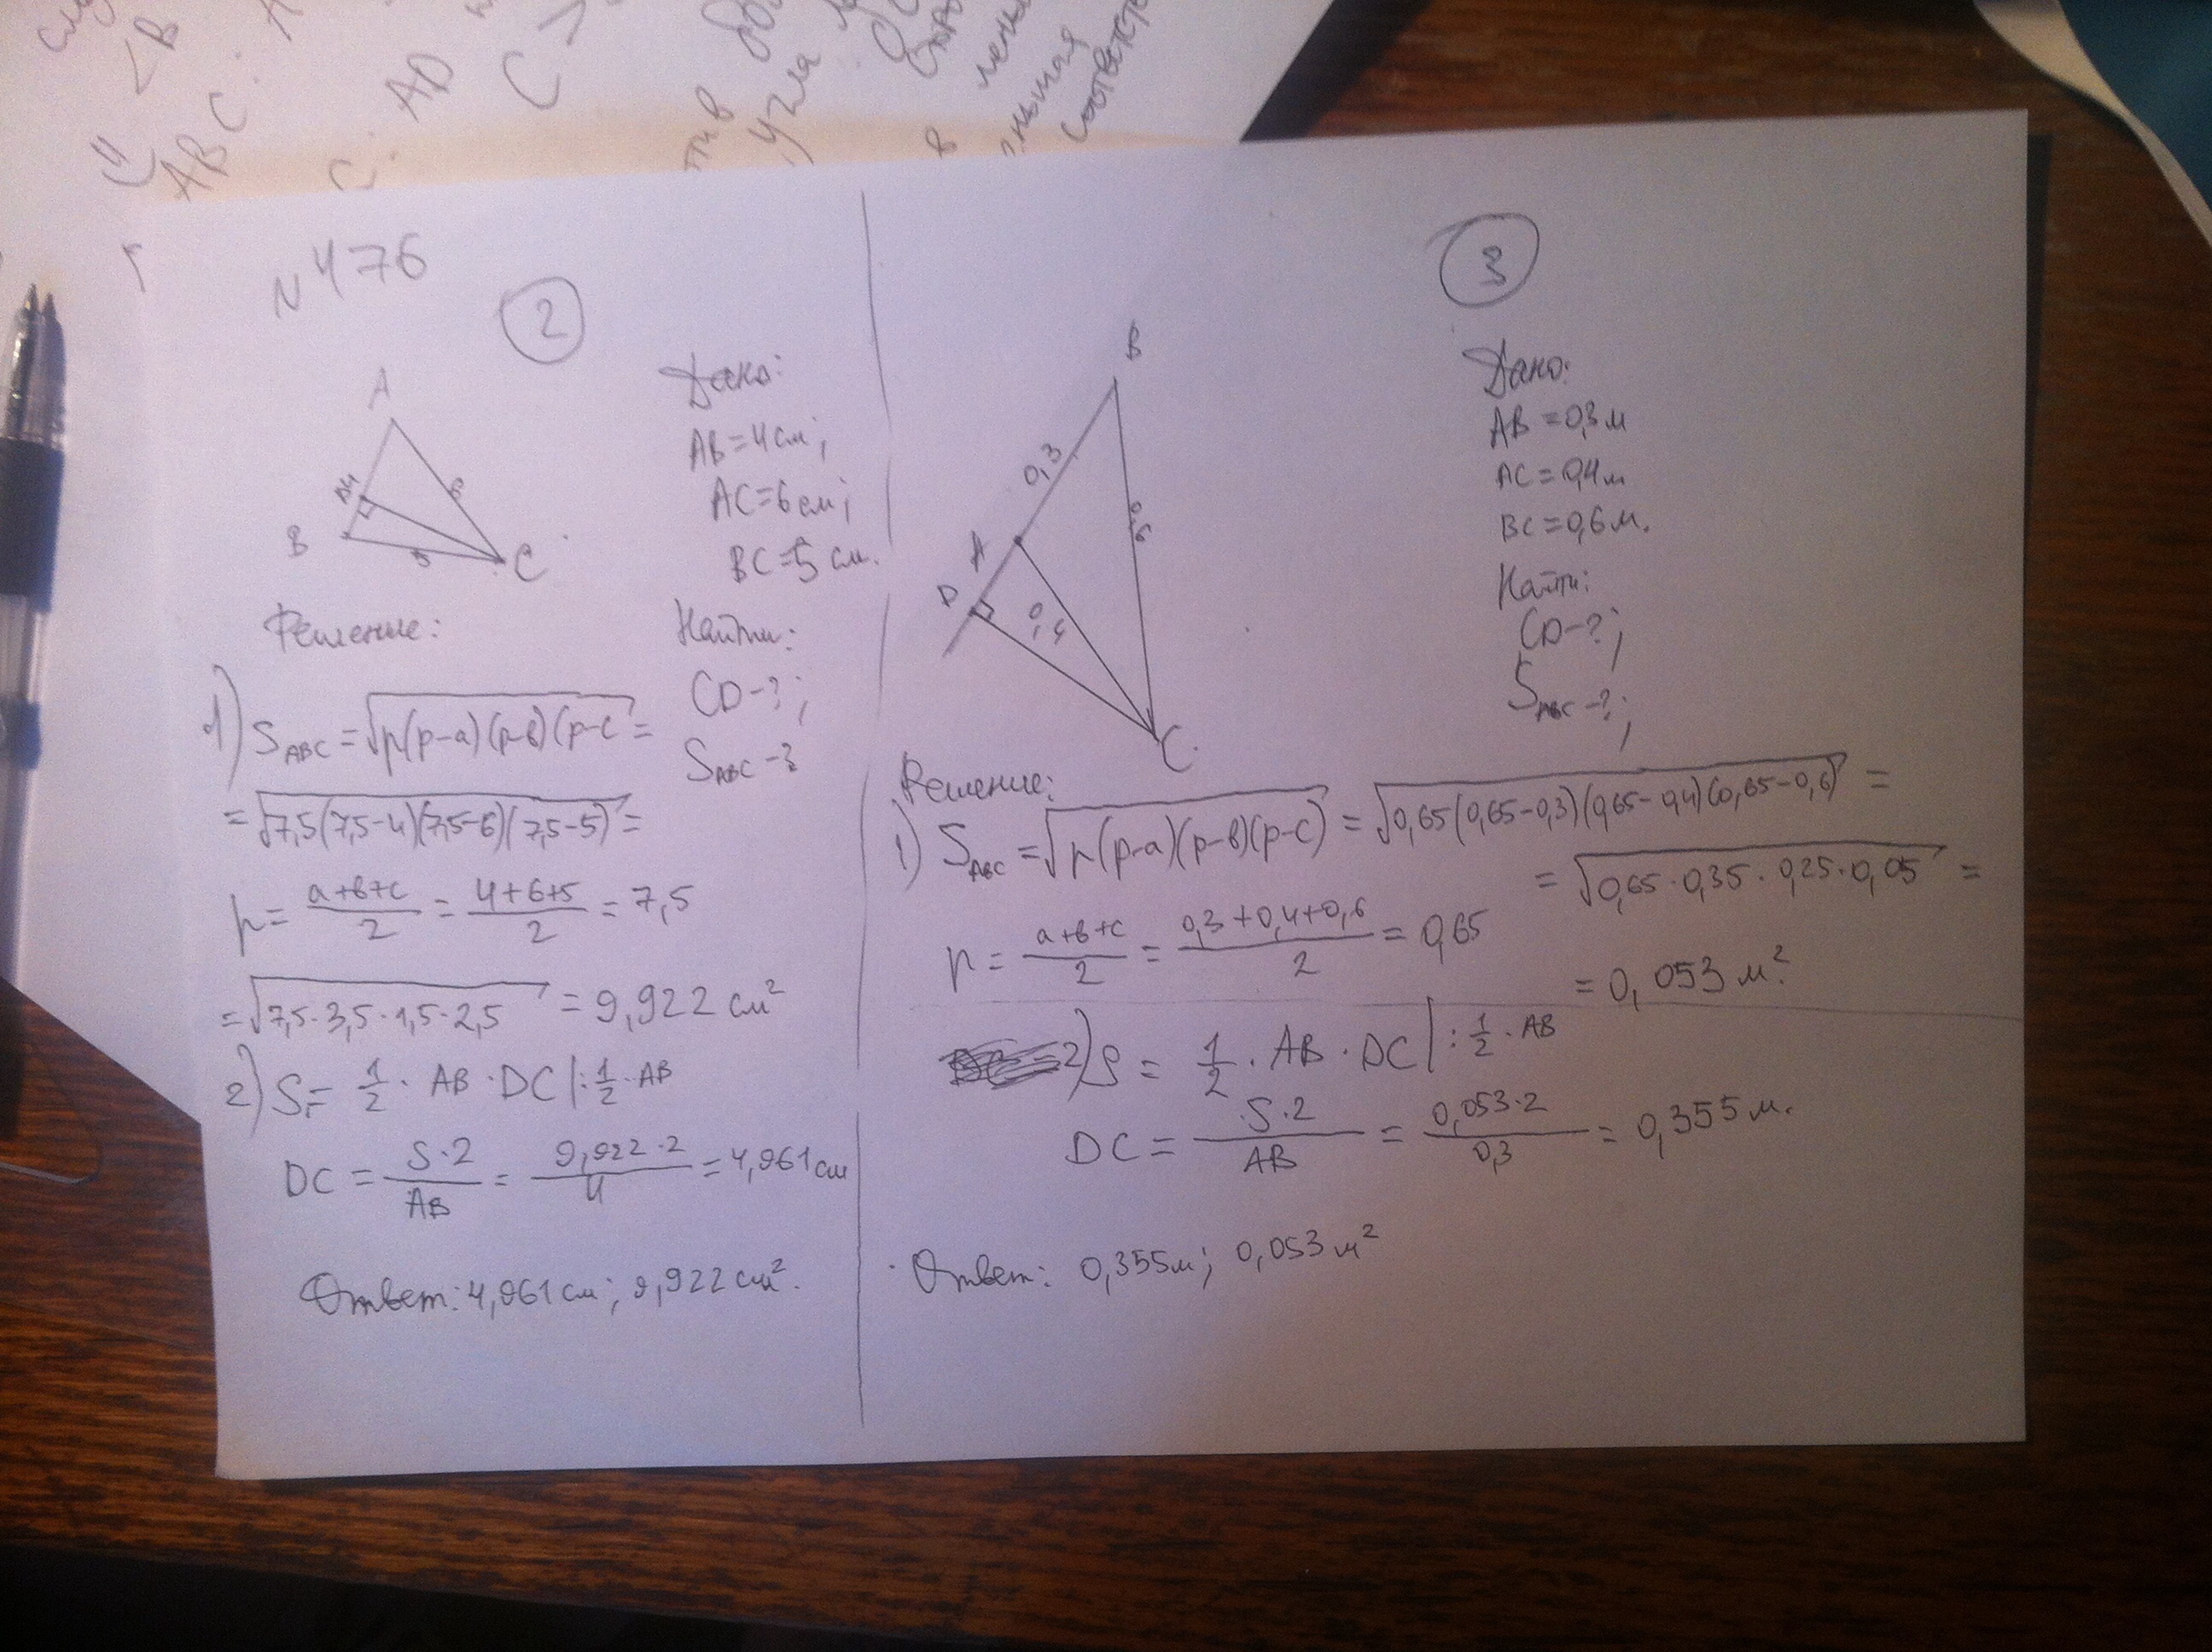 <В
АВС:
С: AD
С >
угла
в
соответств
N 476
2
A
B
C
4
6
5
Дано:
AB=4см;
AC=6см;
BC=5 см.
Найти:
CD-?;
S_ABC -?
Решение:
1) S_ABC = √p(p-a)(p-в)(p-c) =
= √7,5(7,5-4)(7,5-6)(7,5-5) =
p = (a+в+c)/2 = (4+6+5)/2 = 7,5
= √7,5·3,5·1,5·2,5 = 9,922 см²
2) S = 1/2 · AB · DC |: 1/2 · AB
DC = S·2/AB = 9,922·2/4 = 4,961 см
Ответ: 4,961 см; 9,922 см².
3
B
0,3
0,6
A
D
0,4
C
Дано:
AB = 0,3 м
AC = 0,4 м
BC = 0,6 м.
Найти:
CD-?;
S_ABC -?;
Решение:
1) S_ABC = √p(p-a)(p-в)(p-c) = √0,65(0,65-0,3)(0,65-0,4)(0,65-0,6) =
= √0,65·0,35·0,25·0,05 =
p = (a+в+c)/2 = (0,3+0,4+0,6)/2 = 0,65
= 0,053 м².
2) S = 1/2 · AB · DC |: 1/2 · AB
DC = S·2/AB = 0,053·2/0,3 = 0,355 м.
Ответ: 0,355м; 0,053 м²